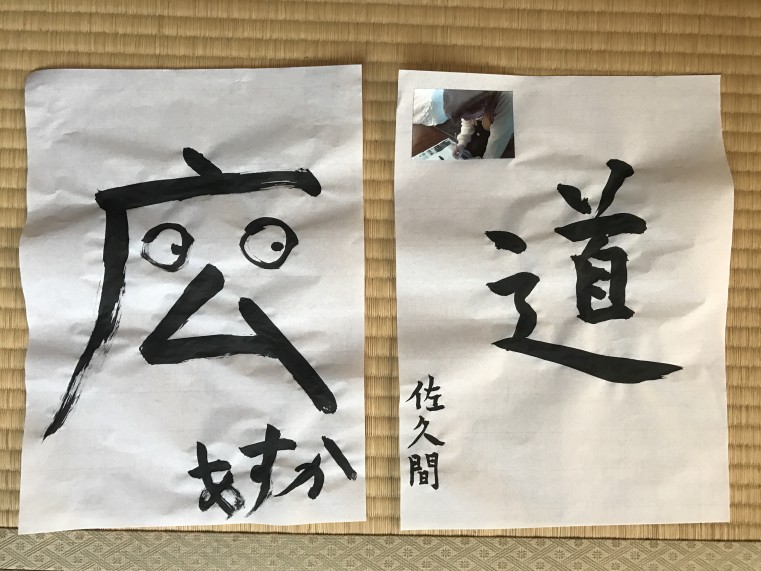 広
あすか
道
佐久間